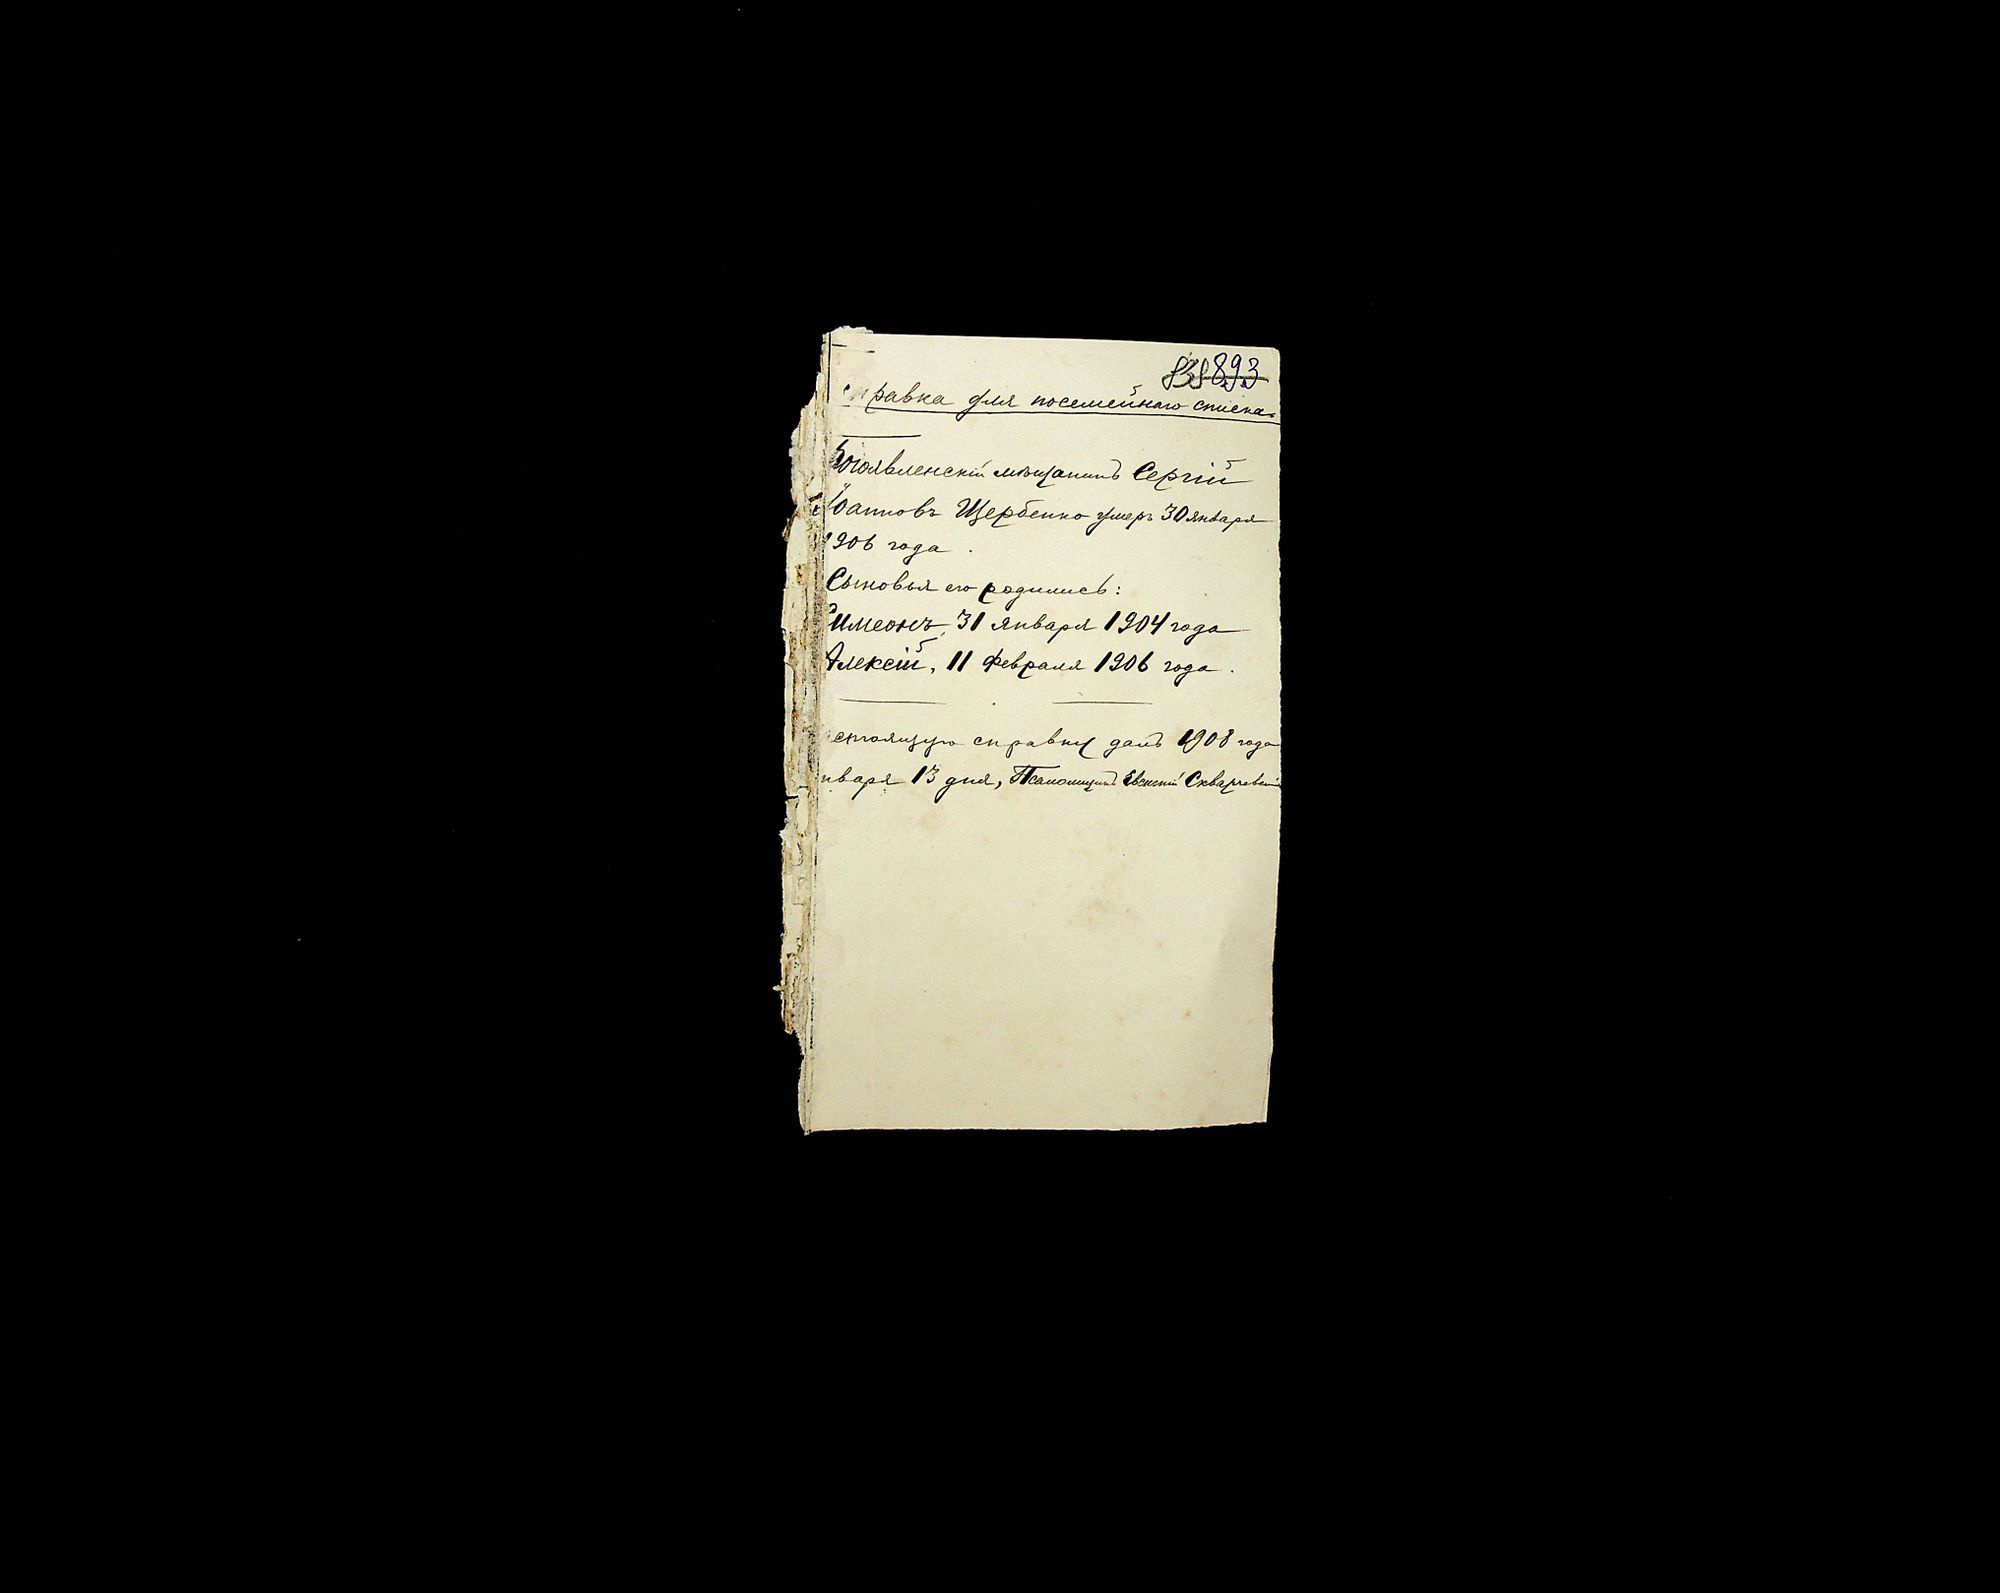 893
Справка для посемейнаго списка.
Богоявленскій мѣщанинъ Сергій
Іоанновъ Щербенко умеръ 30 января
1906 года.
Сыновья его родились:
Симеонъ, 31 января 1904 года
Алексій, 11 февраля 1906 года.
стоящую справку далъ 1908 года
нваря 13 дня, Псаломщикъ Евгеній